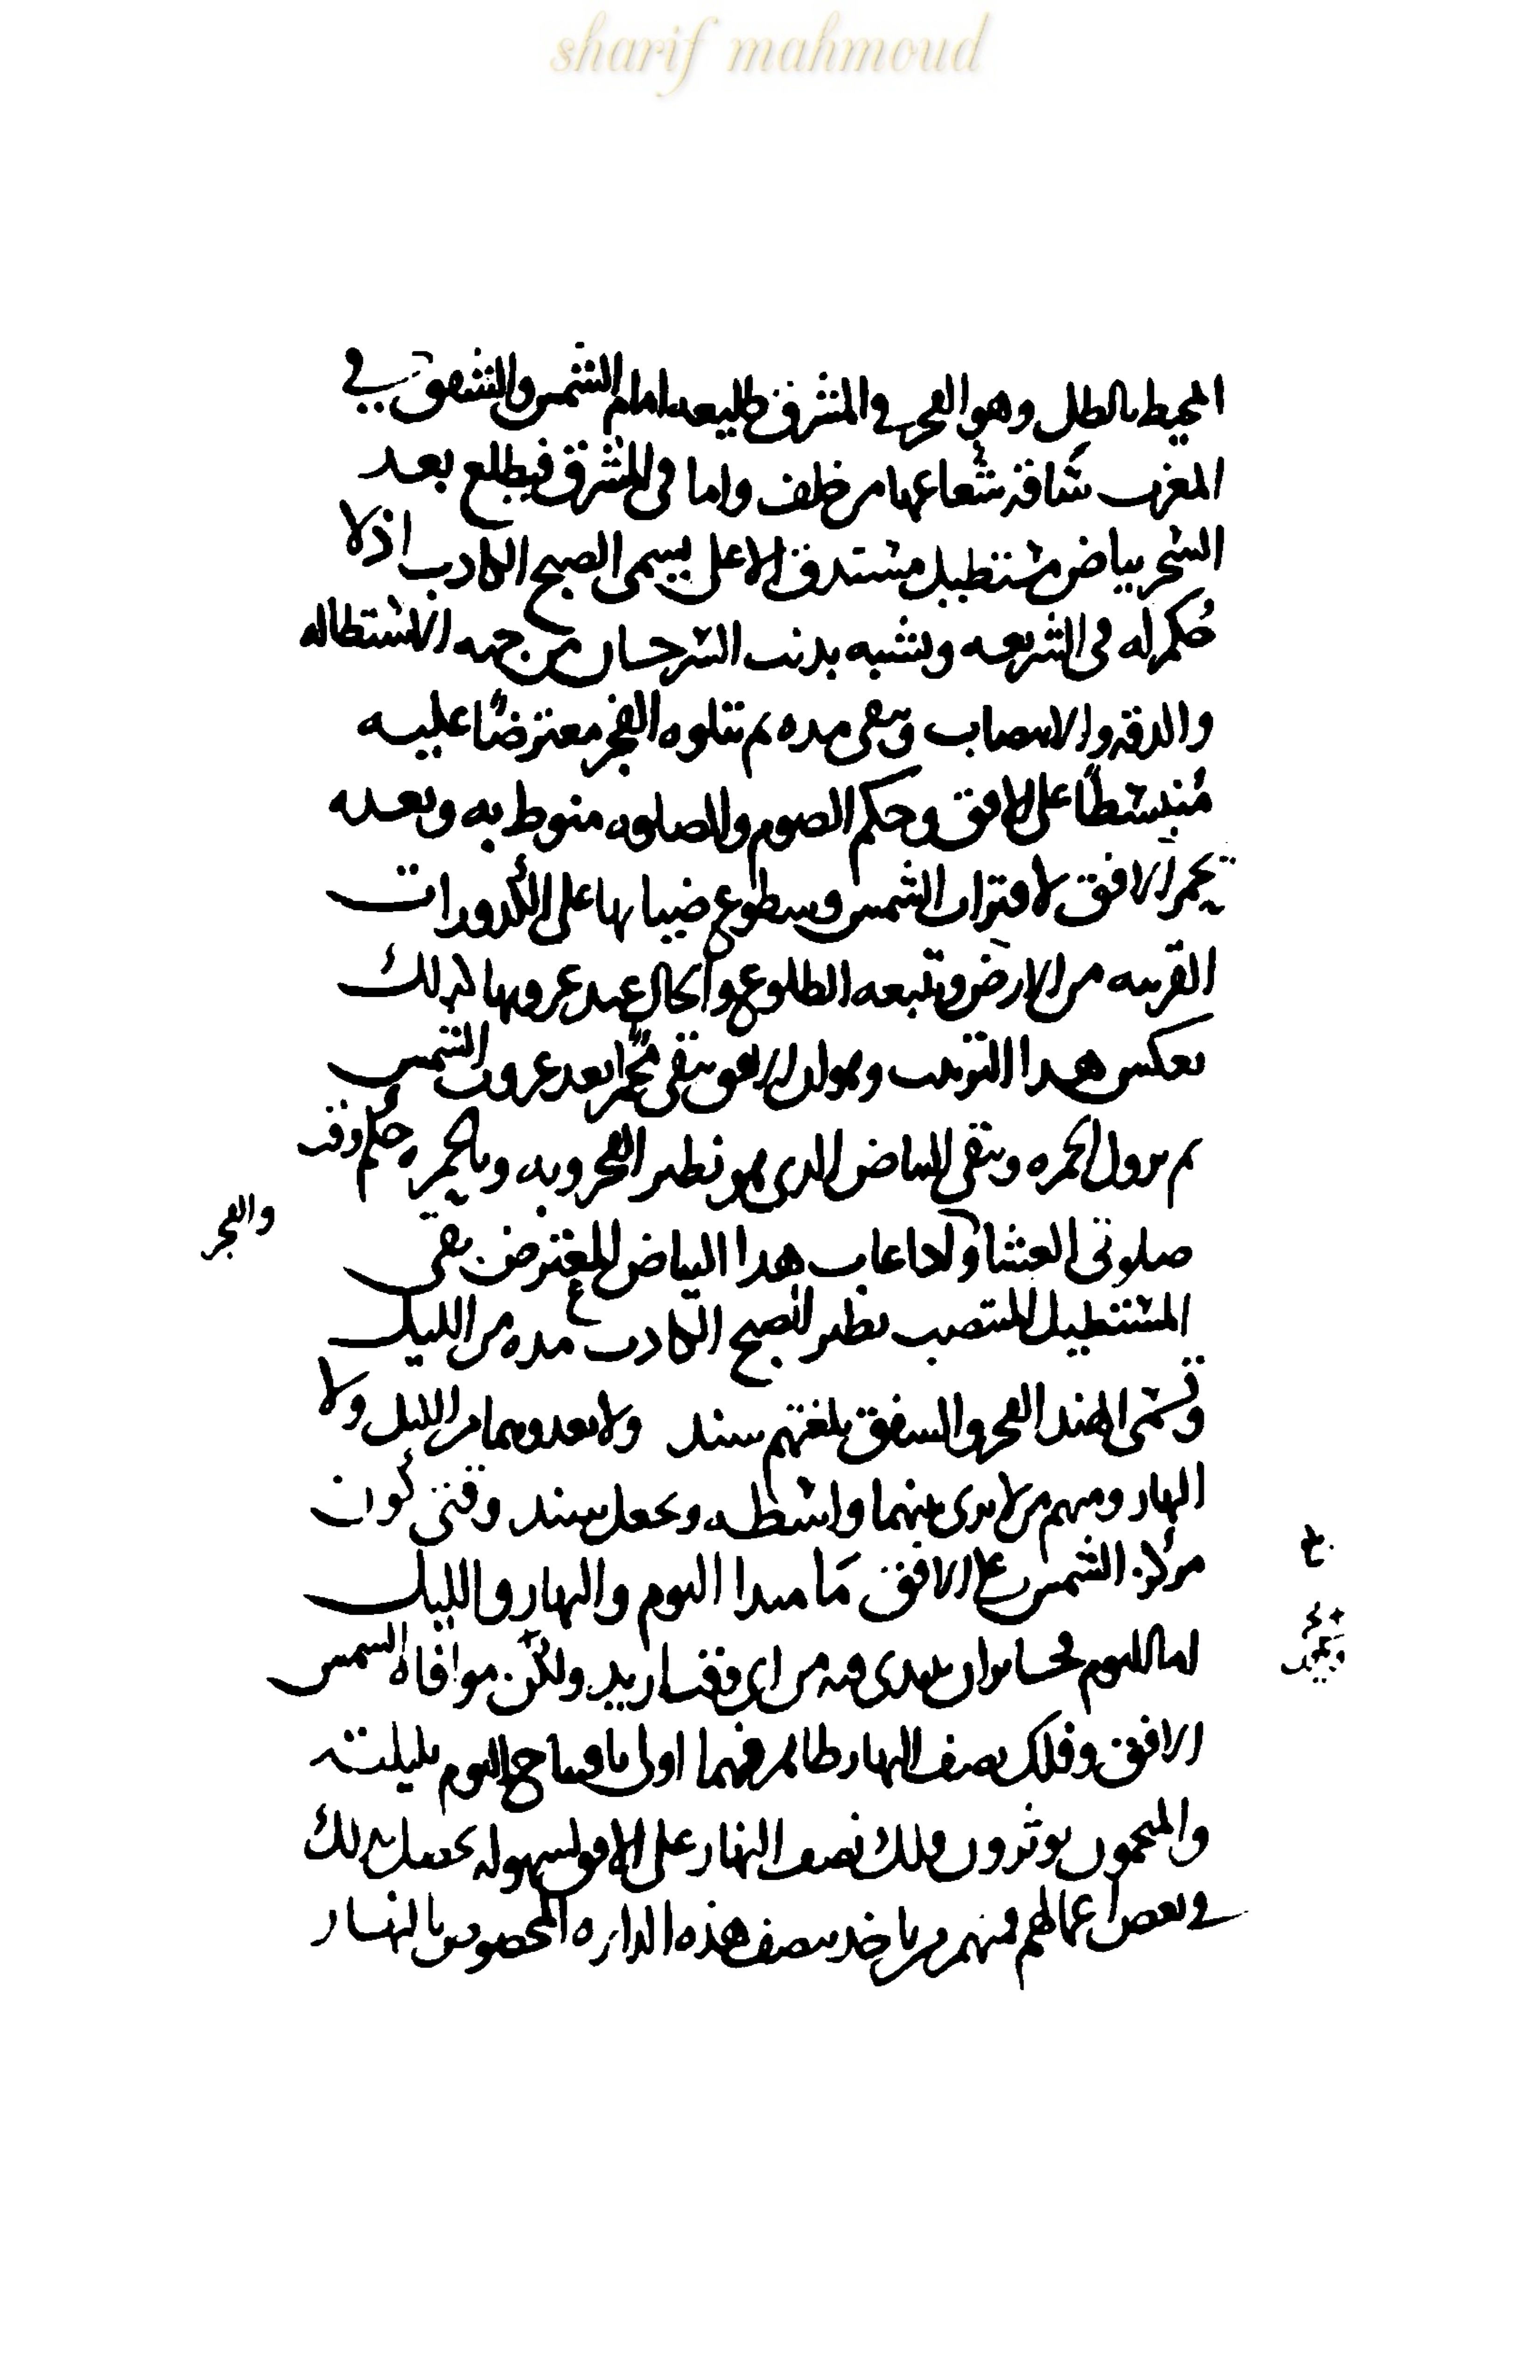 sharif mahmoud
المحيط بالظل وهو الفجر في المشرق طليعه امام الشمس والشفق في
المغرب ساقة شعاعها من خلف واما في المشرق فيطلع بعد
السحر بياض مستطيل مستدق الاعلى يسمى الصبح الكاذب اذ لا
حُكم له في الشريعه ويشبه بذنب السرحان من جهه الاستطاله
والدقه والانتصاب ويبقى مده ثم تتلوه الفجر معترضًا عليه
مُنبسطًا على الافق وحكم الصوم والصلوه منوط به وبعده
يحمر الافق لاقتراب الشمس وسطوع ضيايها على الكدورات
القريبه من الارض وتتبعه الطلوع والحال عند غروبها كذلك
بعكس هذا الترتيب وهو ان الافق يبقى محمرًا بعد غروب الشمس
ثم تزول الحمره ويبقى البياض الذي هو نظير الفجر وبه وبالحمره حكم وقت
صلوتي العشا واذا غاب هذا البياض المعترض بقي
والفجر
المستطيل المنتصب نظير الصبح الكاذب مده من الليل
وتسمى الهند الفجر والشفق بلغتهم سند ولا يعدونهما من الليل ولا
النهار ومنهم من لا يرى بينهما واسطه ويجعل سند وقتى كون
مركز الشمس على الافق مبدا اليوم والنهار والليل
اما اليوم فجايز ان يبتدى فيه من اى وقت اريد ولكن موافاه الشمس
الافق وفلك نصف النهار ظاهر فهما اولى بافتتاح اليوم بليلته
والمنجمون يوثرون فلك نصف النهار على الافق لسهوله تحصل بذلك
في بعض اعمالهم ومنهم من ياخذ بنصف هذه الدايره المخصوص بالنهار